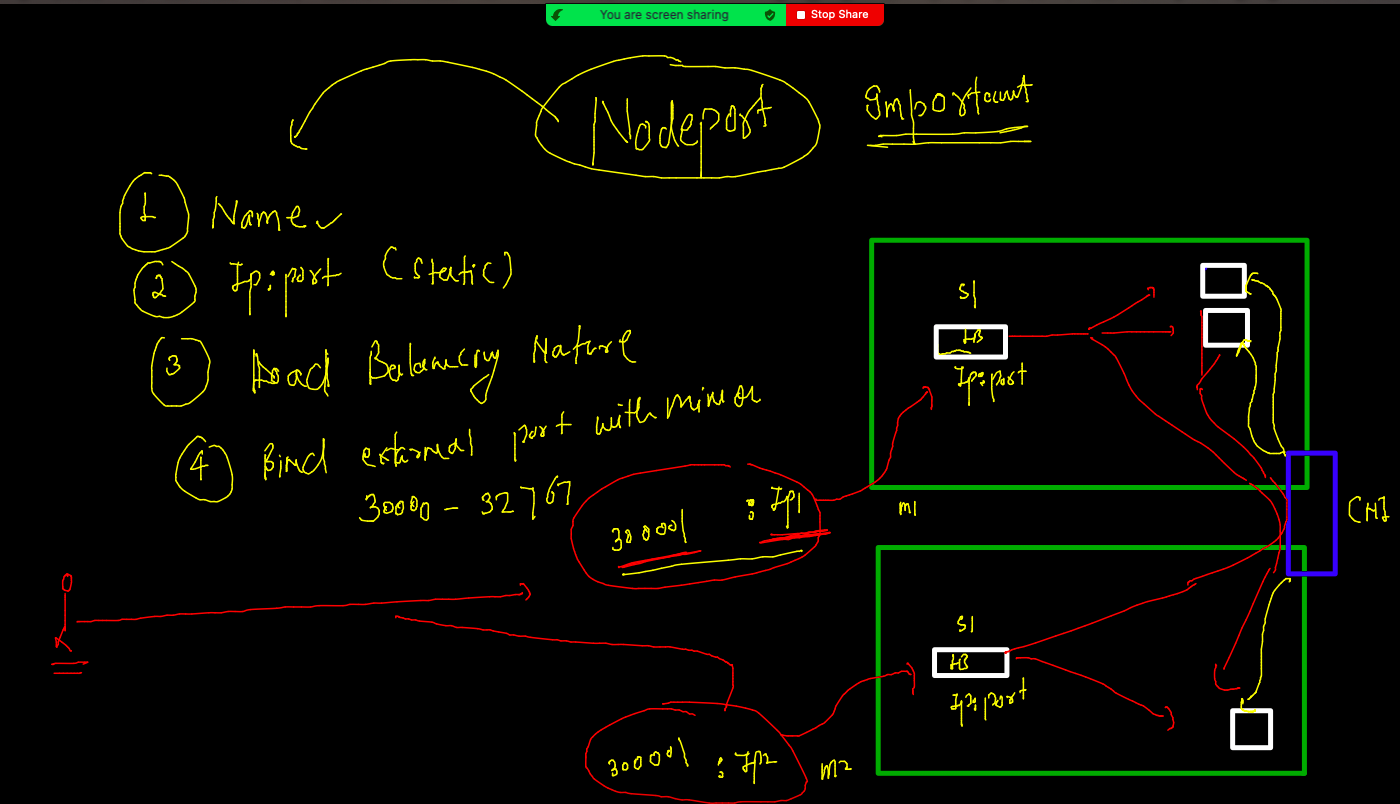 You are screen sharing
Stop Share
Nodeport
Important
1 Name
2 Ip:port (static)
3 Load Balancing Nature
4 Bind external port with minion
30000 - 32767
S1
LB
Ip:port
300001 : Ip1
m1
CNI
S1
LB
Ip:port
300001 : Ip2
m2